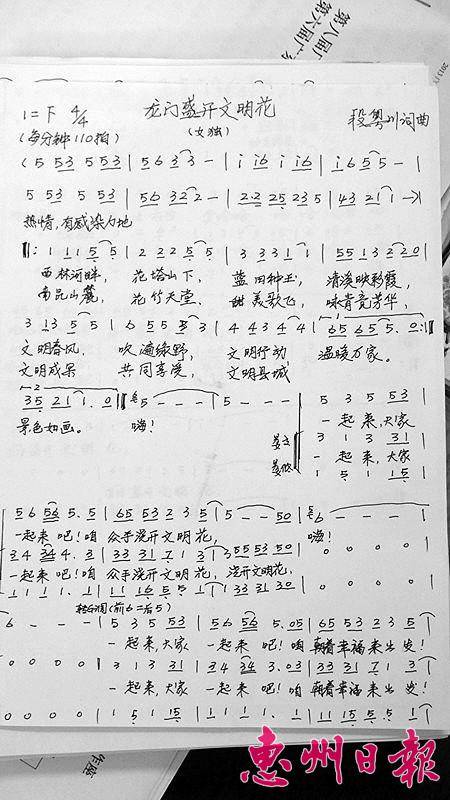 第八届广
第六届广东
2013.1
1=下 4/4
龙门盛开文明花
段粤川词曲
(每分钟110拍)
(女独)
(5 53 5 53 | 56 3 3 - | i i6 i i6 | i6 5 5 -
5 53 5 53 | 56 32 2 - | 22 25 23 5 | 43 21 1 -)
热情,有感染力地
‖: 1 1 1 5 5 | 2 2 2 5 5 | 3 3 3 1 1 | 55 13 22 0 |
西林河畔, 花塔山下, 蓝田种玉, 清溪映彩霞,
南昆山麓, 花竹天堂、 甜美歌飞, 味肯亮芳华,
3 13 5 5 | 6 5 5 5 - | 4 4 3 4 4 | 65 65 5. 0 :‖
文明春风 吹遍绿野, 文明行动 温暖万家。
文明成果 共同享受, 文明县城
35 21 1. 0 | 5 - - - | 5 - - - | 5 3 5 53
景色如画。 嗨! 一起来,大家
3 1 3 31
一起来,大家
1 5 1 15
56 56 5. 5 | 65 53 2 3 5 | 5 - - 50 | 6 - - -
一起来吧!咱 众手浇开文明花, 嗨!
34 34 4. 3 | 33 31 7 1 3 | 35 55 53 50 | 0 0 0 0
一起来吧!咱 众手浇开文明花, 浇开文明花,
1 1 1 1. 1 | 11 16 5 5 1 | 13 33 31 30 | 0 0 0 0
转G调(前6=后5)
6 - - - | 5 3 5 53 | 56 56 5. 05 | 65 53 2 3 5
一起来,大家 一起来吧!咱 朝着幸福来出发!
0 0 0 0 | 3 1 3 31 | 34 34 3. 03 | 33 31 7 1 3
一起来,大家 一起来吧!咱 朝着幸福来出发!
0 0 0 0 | 1 5 1 15 | 1 1 1 1. 1 | 11 15 5 5 1
惠州日報